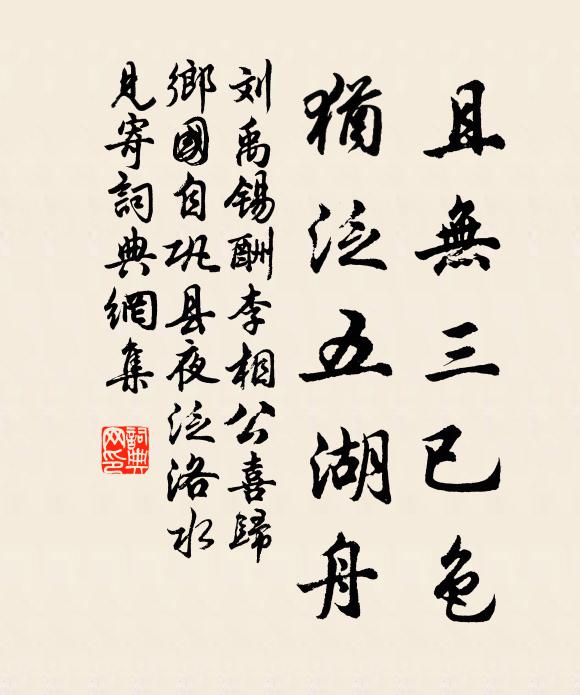 且無三已色
猶泛五湖舟
刘禹锡酬李相公喜歸
鄉國自巩县夜泛洛水
見寄詞典網集
詞典网印